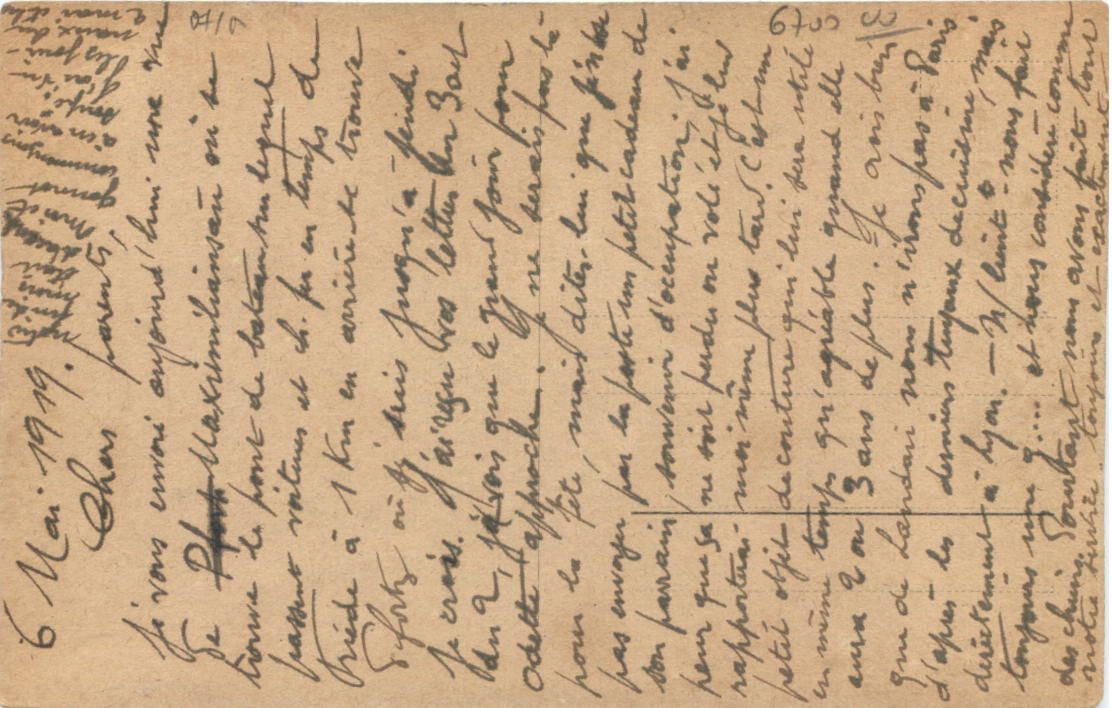 6 Mai 1919.
Chers parents,
Je vous envoi aujourd'hui une vue
de Maximiliansau où se
trouve le pont de bateau sur lequel
passent voitures et ch. fer en temps de
 à 1 Km en arrière se trouve
Pfortz où je suis jusqu'à jeudi
je crois. J'ai reçu vos lettres du 30 et
du 2, je vois que le grand jour pour
Odette approche. Je ne serais pas là
pour la fête, mais dites-lui que je n'ose
pas envoyer par la poste un petit cadeau de
son parrain, souvenir d'occupation, j'ai
peur que ça ne soit perdu ou volé et je leur
rapporterai moi même plus tard. C'est un
petit objet de couture qui lui sera utile
en même temps qu'agréable quand elle
aura 2 ou 3 ans de plus. Je crois bien
que de Landau nous n'irons pas à Paris
d'après les derniers tuyaux de cuisine, mais
directement à Lyon. — N/ lieut. nous fait
toujours une g.... et nous considère comme
des chiens. Pourtant nous avons fait tout
notre service toujours et exactement
6795